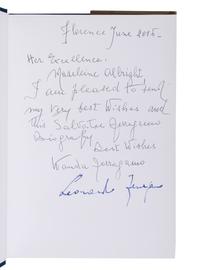 Florence June 2015-
Her Excellence.
Madeleine Albright
I am pleased to send
my very best Wishes and
this Salvatore Ferragamo
Biography
Best Wishes
Wanda Ferragamo
Leonardo Ferragamo